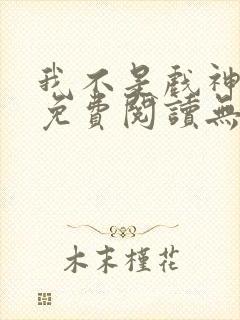 我不是戲神
免費閱讀無
木末槿花